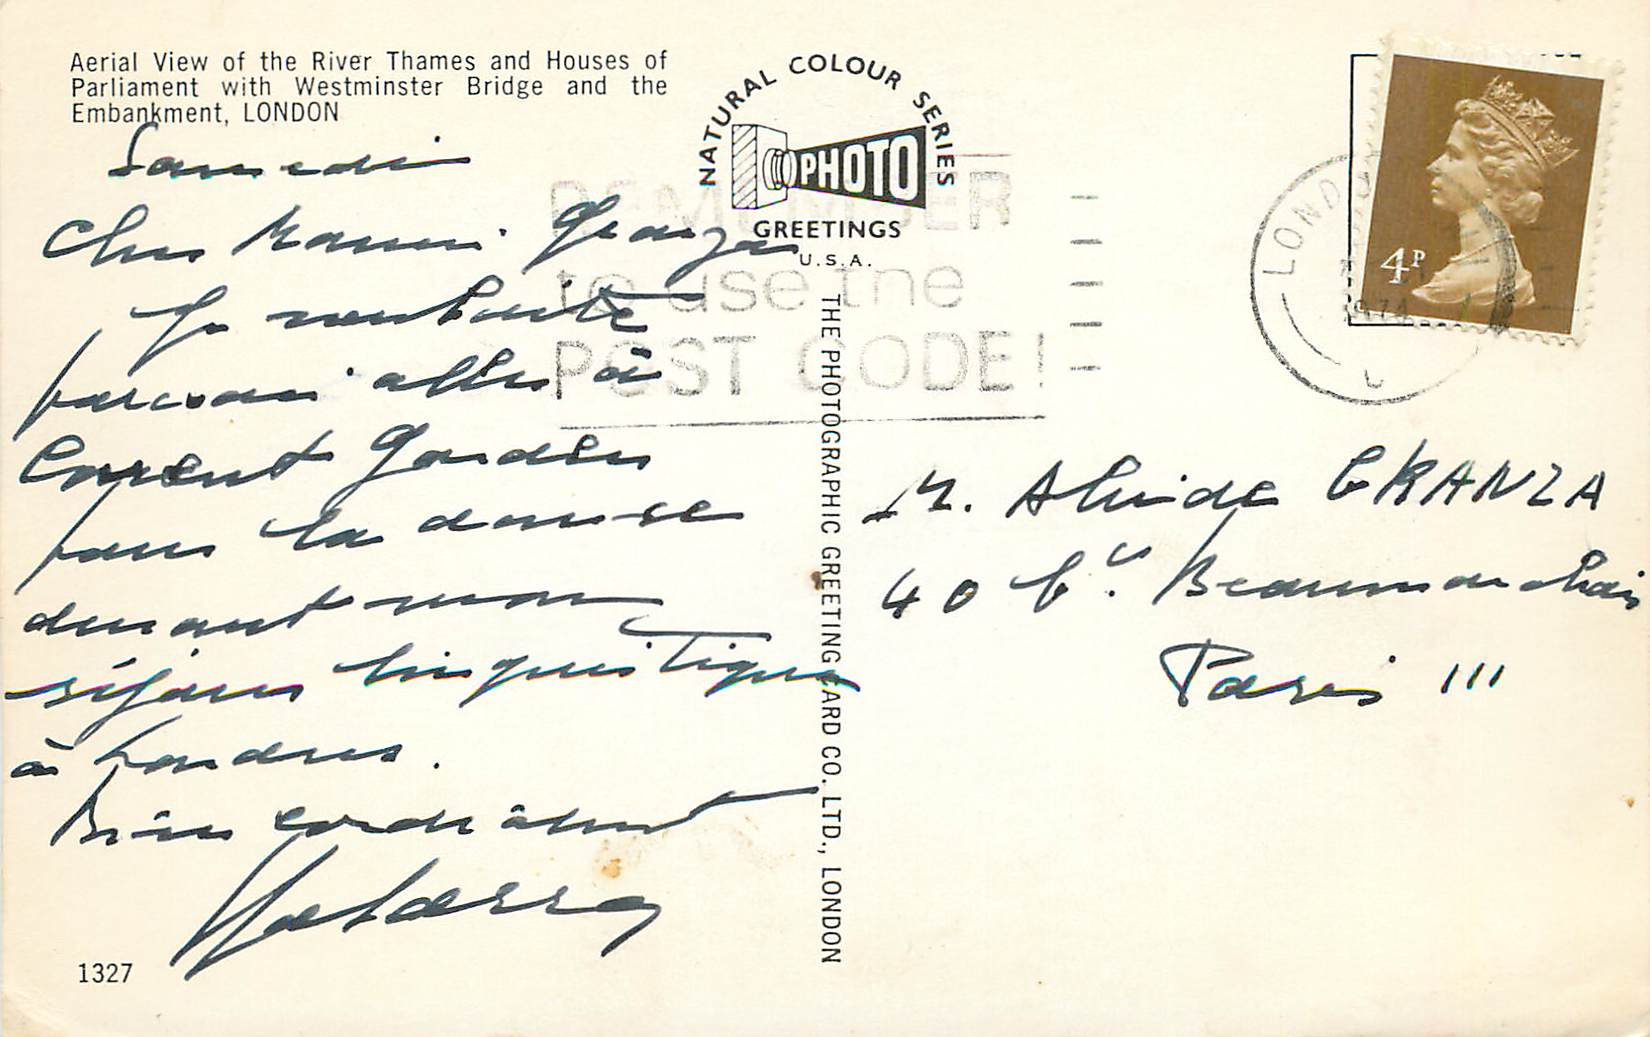 Aerial View of the River Thames and Houses of
Parliament with Westminster Bridge and the
Embankment, LONDON
Samedi
Cher Monsieur Granza
Je souhaite
pouvoir aller à
Covent Garden
pour la danse
durant mon
séjour linguistique
à Londres.
Bien cordialement
1327
NATURAL COLOUR SERIES
PHOTO
GREETINGS
U.S.A.
THE PHOTOGRAPHIC GREETING CARD CO. LTD., LONDON
REMEMBER
to use the
POST CODE!
LONDON
1974
4P
M. Alcide GRANZA
40 bd. Beaumarchais
Paris III